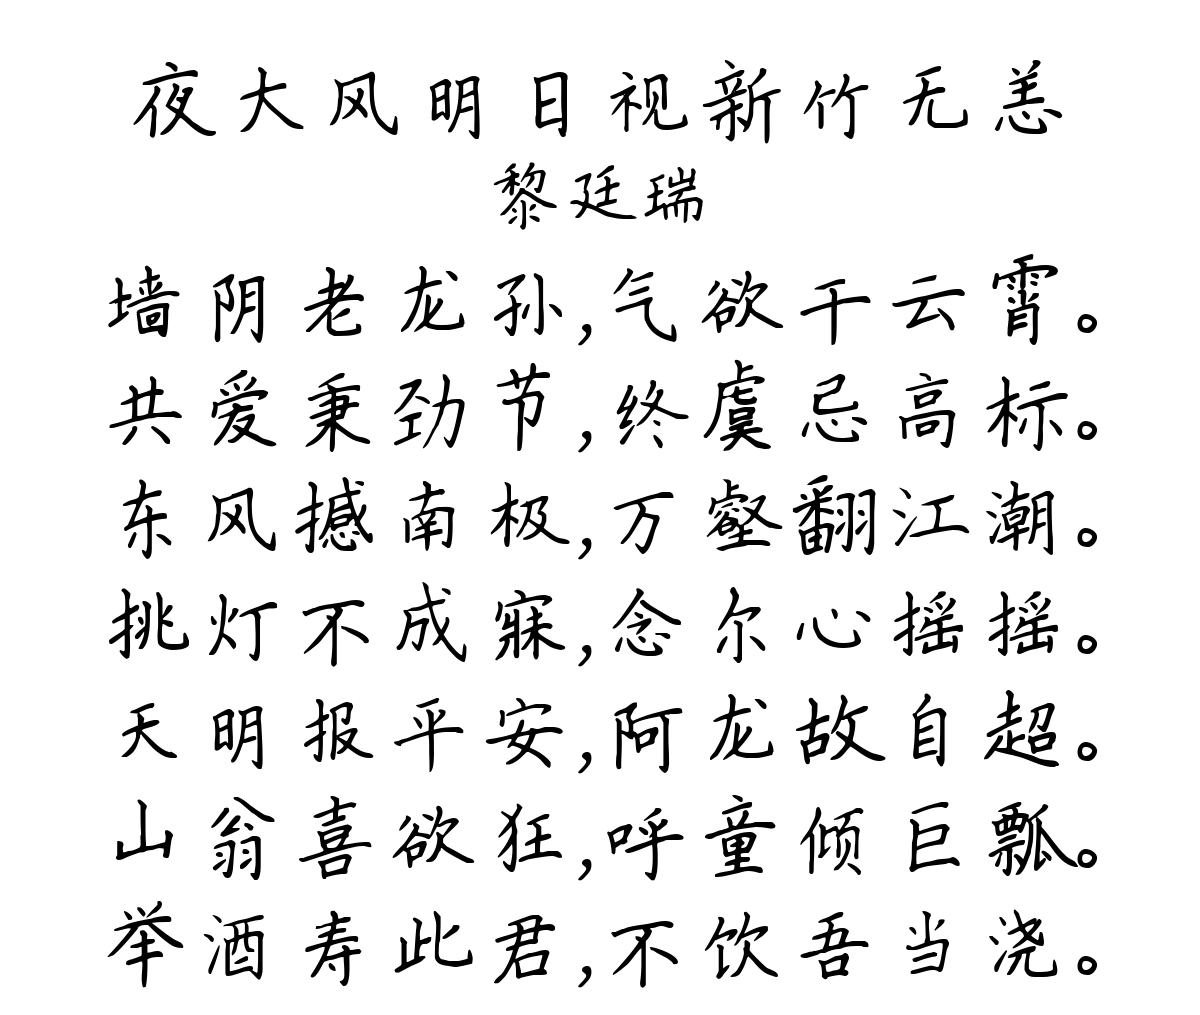 夜大风明日视新竹无恙
黎廷瑞
墙阴老龙孙,气欲干云霄。
共爱秉劲节,终虞忌高标。
东风撼南极,万壑翻江潮。
挑灯不成寐,念尔心摇摇。
天明报平安,阿龙故自超。
山翁喜欲狂,呼童倾巨瓢。
举酒寿此君,不饮吾当浇。